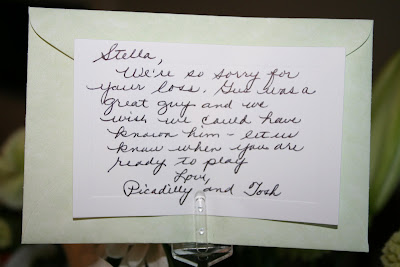 Stella,
We're so sorry for
your loss. Gus was a
great guy and we
wish we could have
known him - let us
know when you are
ready to play
Love,
Picadilly and Tosh